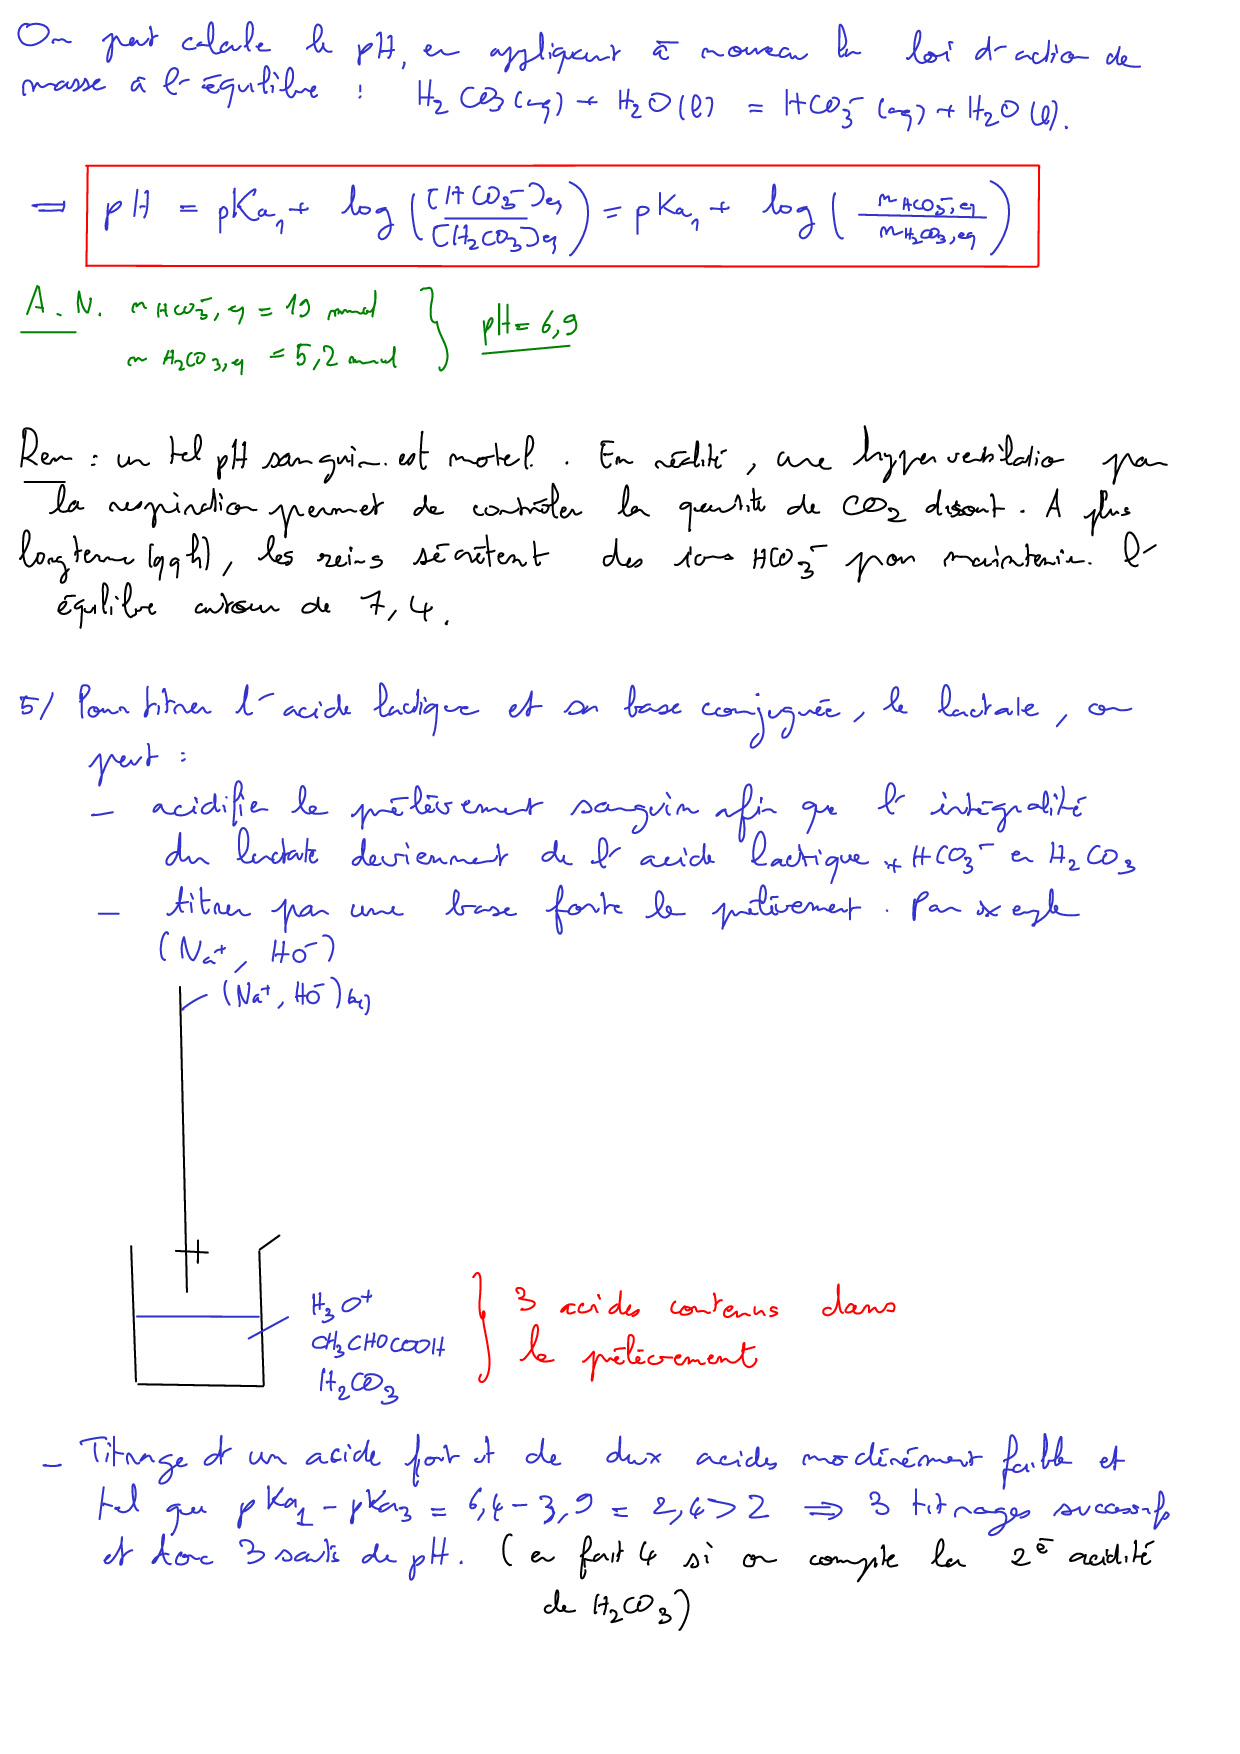 On peut calcule le pH, en appliquant à nouveau la loi d'action de
masse à l'équilibre : H₂CO₃(aq) + H₂O(l) = HCO₃⁻(aq) + H₂O(l).
⇒ pH = pKa₁ + log([HCO₃⁻]eq/[H₂CO₃]eq) = pKa₁ + log(nHCO₃⁻,eq/nH₂CO₃,eq)
A.N. nHCO₃⁻,eq = 19 mmol
nH₂CO₃,eq = 5,2 mmol } pH = 6,9
Rem : un tel pH sanguin est motel. En réalité, une hyperventilation par
la respiration permet de contrôler la quantité de CO₂ dissout. A plus
long terme (qq h), les reins sécrètent des ions HCO₃⁻ pour maintenir l'
équilibre autour de 7,4.
5/ Pour titrer l'acide lactique et sa base conjuguée, le lactate, on
peut :
- acidifier le prélèvement sanguin afin que l'intégralité
du lactate deviennent de l'acide lactique + HCO₃⁻ en H₂CO₃
- titrer par une base forte le prélèvement. Par exemple
(Na⁺, HO⁻)
(Na⁺, HO⁻)(aq)
H₃O⁺
CH₃CHOCOOH
H₂CO₃
} 3 acides contenus dans
le prélèvement
- Titrage d'un acide fort et de deux acides modérément faible et
tel que pKa₁ - pKa₃ = 6,4 - 3,9 = 2,4 > 2 ⇒ 3 titrages successifs
et donc 3 sauts de pH. (en fait 4 si on compte la 2è acidité
de H₂CO₃)